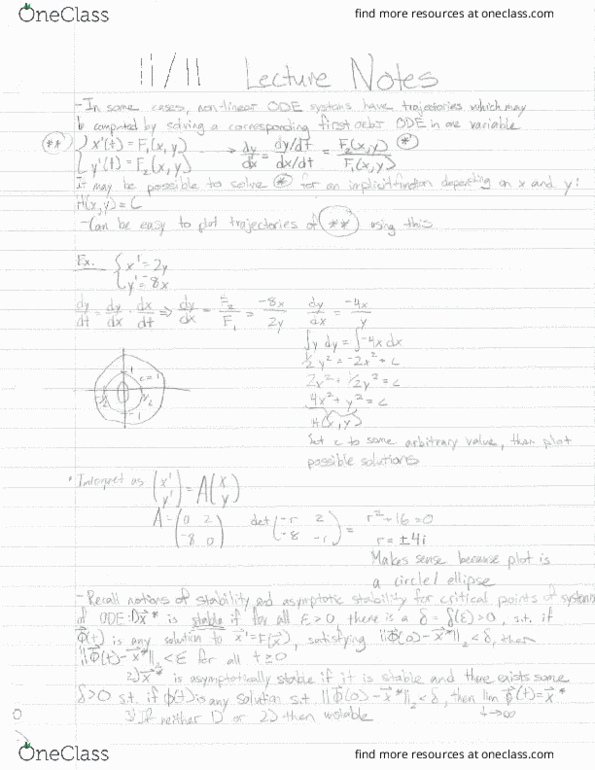 OneClass find more resources at oneclass.com
11/11 Lecture Notes
-In some cases, non-linear ODE systems have trajectories which may
be computed by solving a corresponding first order ODE in one variable
(**) { x'(t) = F₁(x,y) → dy/dx = (dy/dt)/(dx/dt) = F₂(x,y)/F₁(x,y) (*)
{ y'(t) = F₂(x,y)
It may be possible to solve (*) for an implicit function depending on x and y:
H(x,y) = C
-Can be easy to plot trajectories of (**) using this
Ex. { x' = 2y
{ y' = -8x
dy/dt = dy/dx · dx/dt ⇒ dy/dx = F₂/F₁ = -8x/2y dy/dx = -4x/y
∫y dy = ∫-4x dx
½y² = -2x² + c
2x² + ½y² = c
4x² + y² = c
H(x,y)
1 c=1
½
-1
Set c to some arbitrary value, then plot
possible solutions
Interpret as (x' y') = A(x y)
A = (0 2 -8 0) det(-r 2 -8 -r) = r² + 16 = 0
r = ±4i
Makes sense because plot is
a circle/ellipse
-Recall notions of stability and asymptotic stability for critical points of systems
of ODE: 1) x⃗* is stable if for all ε>0, there is a δ = δ(ε)>0, s.t. if
φ⃗(t) is any solution to x⃗' = F(x⃗), satisfying ||φ⃗(0) - x⃗*||₂ < δ, then
||φ⃗(t) - x⃗*||₂ < ε for all t ≥ 0
2) x⃗* is asymptotically stable if it is stable and there exists some
δ>0 s.t. if φ(t) is any solution s.t. ||φ⃗(0) - x⃗*||₂ < δ, then lim φ⃗(t) = x⃗*
t→∞
3) If neither 1) or 2) then unstable
OneClass find more resources at oneclass.com